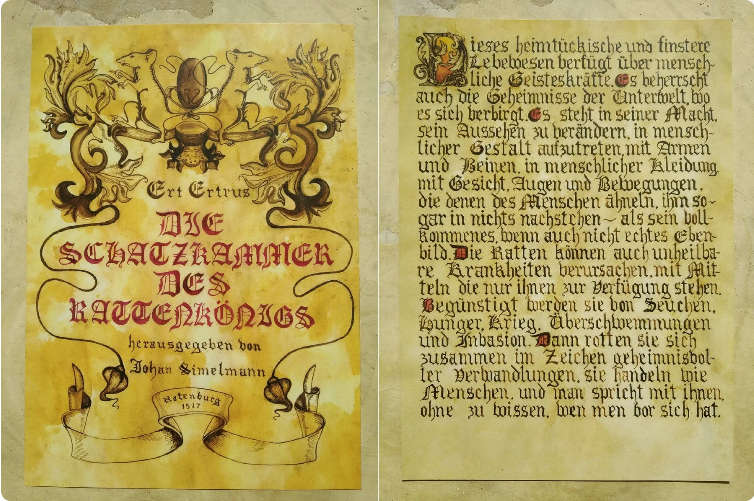 Ert Ertrus
DIE
SCHATZKAMMER
DES
RATTENKÖNIGS
herausgegeben von
Johan Simelmann
Rotenburg
1517
Dieses heimtückische und finstere
Lebewesen verfügt über mensch-
liche Geisteskräfte. Es beherrscht
auch die Geheimnisse der Unterwelt, wo
es sich verbirgt. Es steht in seiner Macht,
sein Aussehen zu verändern, in mensch-
licher Gestalt aufzutreten, mit Armen
und Beinen, in menschlicher Kleidung,
mit Gesicht, Augen und Bewegungen,
die denen des Menschen ähneln, ihm so-
gar in nichts nachstehen - als sein voll-
kommenes, wenn auch nicht echtes Eben-
bild. Die Ratten können auch unheilba-
re Krankheiten verursachen, mit Mit-
teln die nur ihnen zur Verfügung stehen.
Begünstigt werden sie von Seuchen,
Hunger, Krieg, Überschwemmungen
und Invasion. Dann rotten sie sich
zusammen im Zeichen geheimnisvol-
ler Verwandlungen, sie handeln wie
Menschen, und man spricht mit ihnen,
ohne zu wissen, wen men vor sich hat.